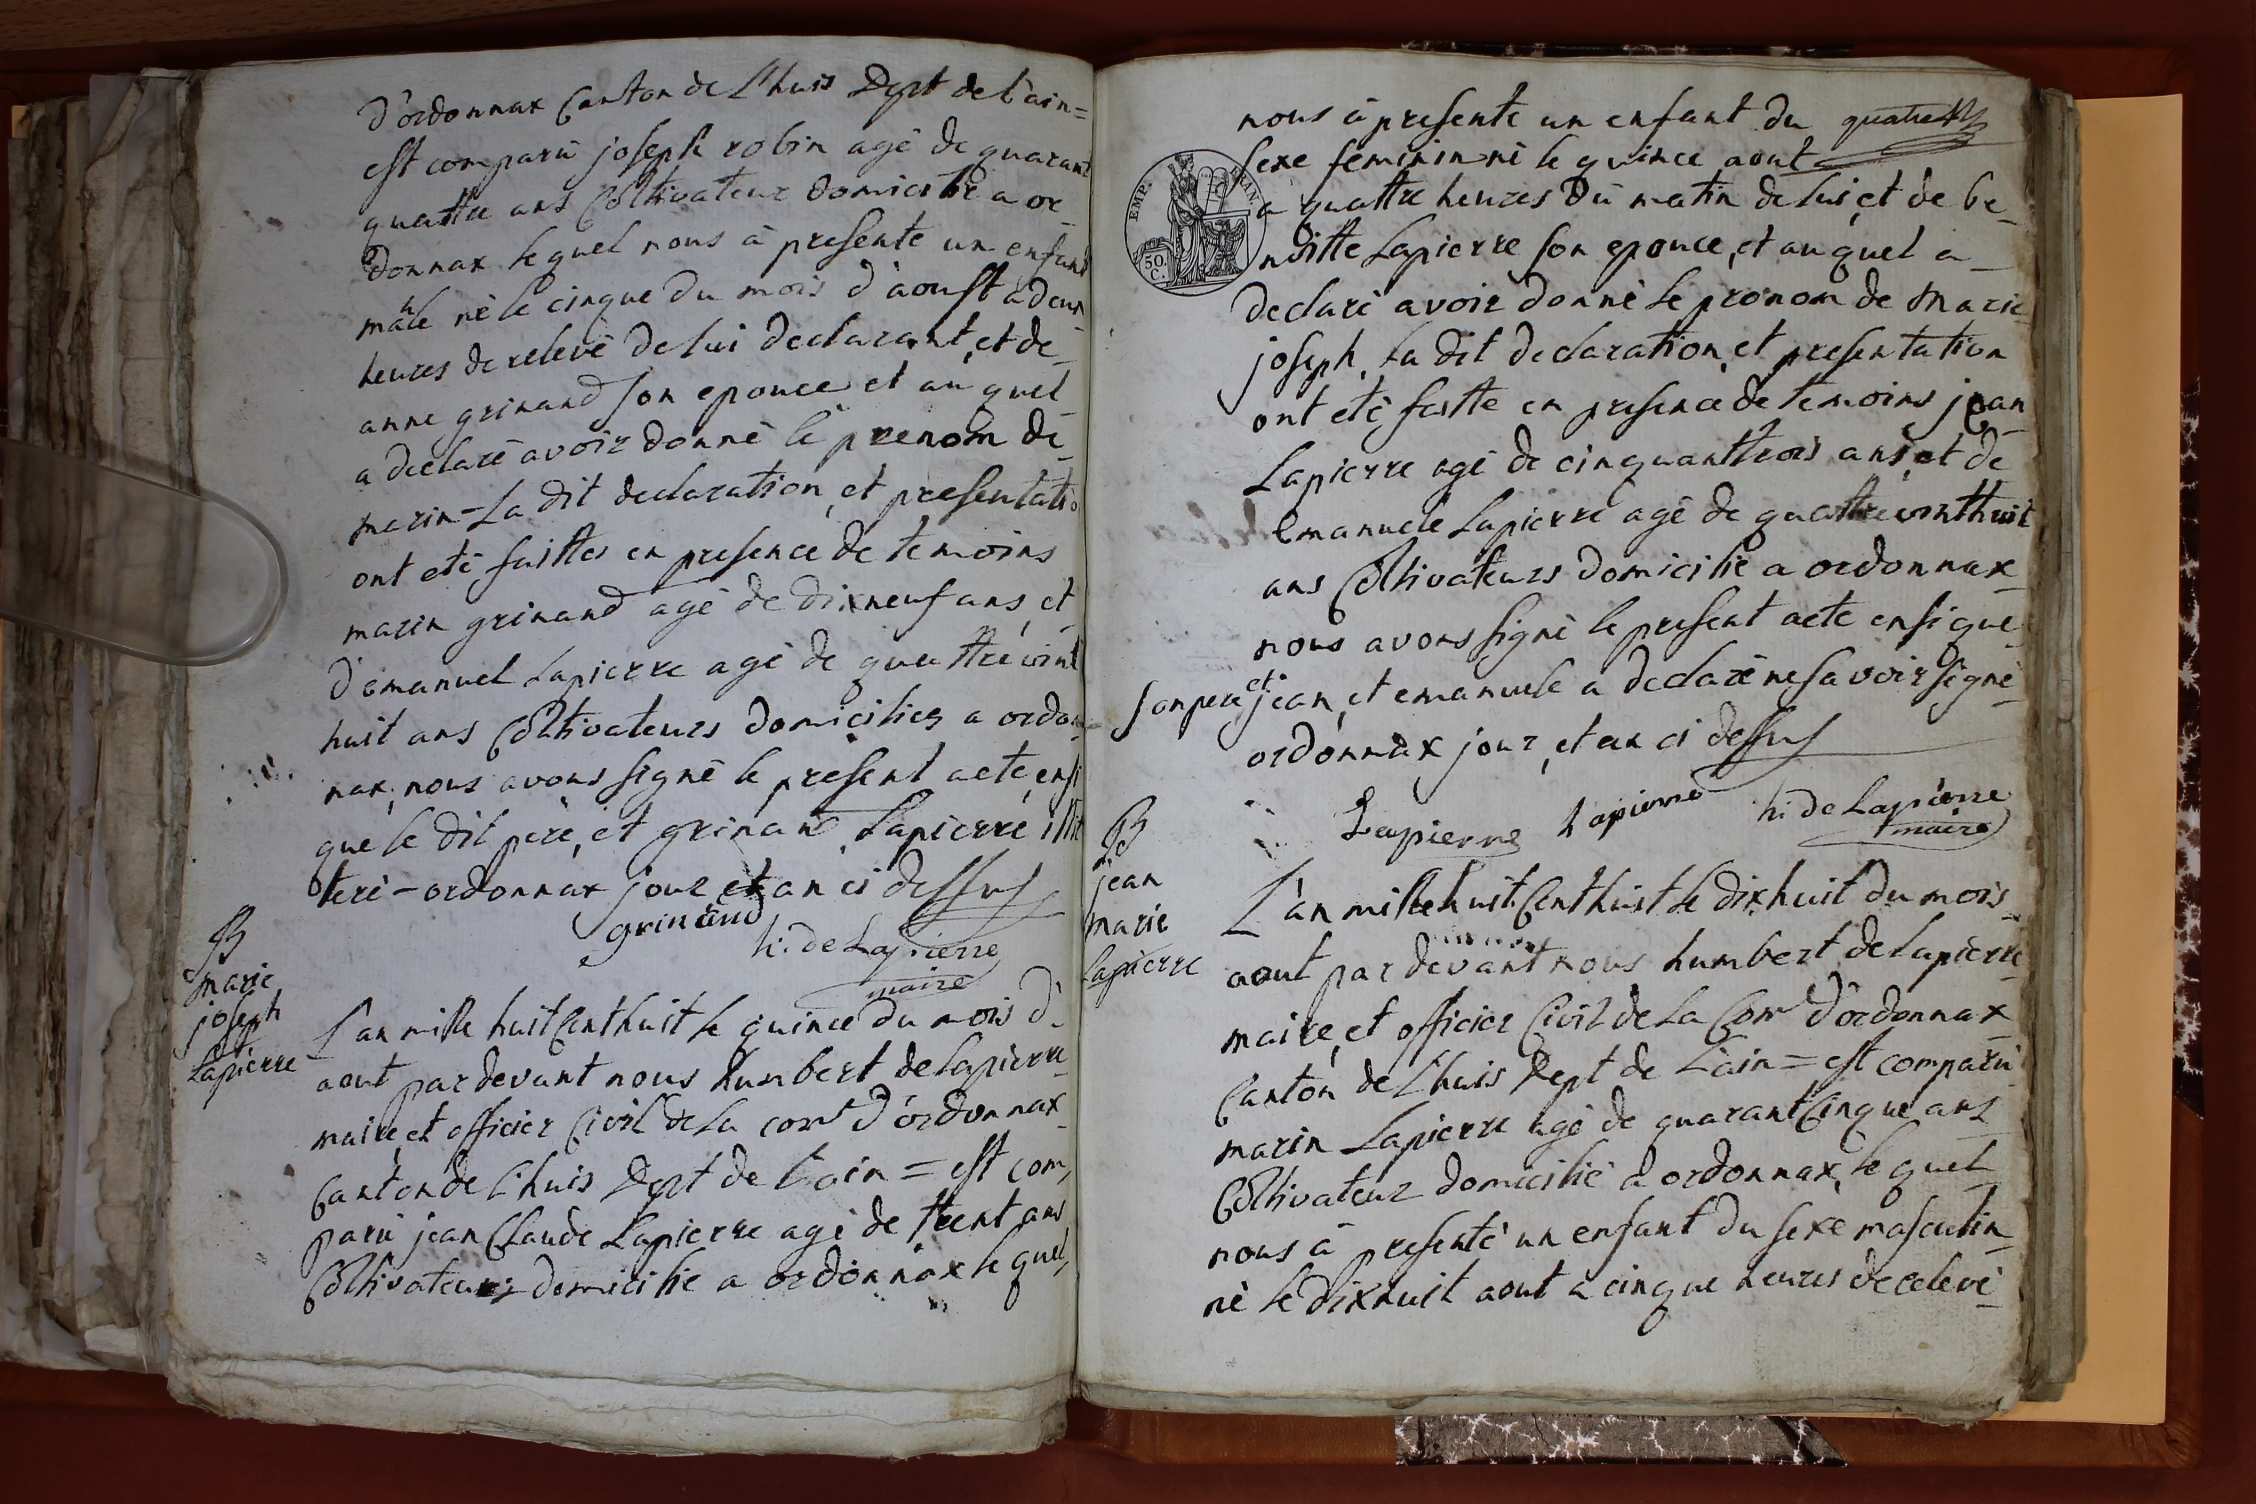 d'ordonnax Canton de L'huis Dept de l'ain=
est comparû joseph robin agé de quarant
quattre ans Coltivateur domicilié a or-
donnax le quel nous à presenté un enfant
mahle né le cinque du mois d'aoust a deux
heures de relevé de lui declarant, et de-
anne grinand son epouce et au quel
a declaré avoir donné lé prenom de-
marin - La dit declaration, et presentatio
ont eté faittes en presence de temoins
marin grinand agé de dixneuf ans, et
d'emanuel Lapierre agé de quattrevint
huit ans Coltivateurs domiciliés a ordon
nax, nous avons signé le present acte, ensi
que le dit peré, et grinand Lapierré illit
teré - ordonnax jour et an ci dessus
grinand
h: de Lapierre
maire
B
marie
joseph
Lapierre
L'an mille huit Cent huit le quince du mois d'
aout par devant nous humbert de lapierre
maire, et officier Civil de la com d'ordonnax
Canton de L'huis Dept de L'ain = est com,
parû jean Claude Lapierre agé de trent ans
Coltivateur domicilié a ordonnax le quel,
nous à presenté un enfant du quatre
sexe feminin né le quince aout
a quattre heures du matin de lui, et de be-
noitte Lapierre son epouce, et au quel a-
declaré avoir donné le pronom de Marie
joseph, la dit declaration, et presentation
ont eté faitte en presence de temoins jean
Lapierre agé de cinquanttrois ans, et de
emanuele Lapierre agé de quattrevinthuit
ans Coltivateurs domicilié a ordonnax
nous avons signé le present acte ensi que
son pere et jean, et emanuele a declaré ne savoir signé
ordonnax jour, et an ci dessus
Lapierre Lapierre h: de Lapierre
maire
B
jean
marie
Lapierre
L'an mille huit Cent huit le dixhuit du mois
aout par devant nous humbert de lapierre
maire, et officier Civil de la Com d'ordonnax
Canton de L'huis Dept de L'ain = est comparû
marin Lapierre agé de quarant Cinque ans
Coltivateur domicilié à ordonnax, le quel
nous à presenté un enfant du sexe masculin
né le dixhuit aout a cinque heures de relevé
EMP. FRAN.
50.
C.